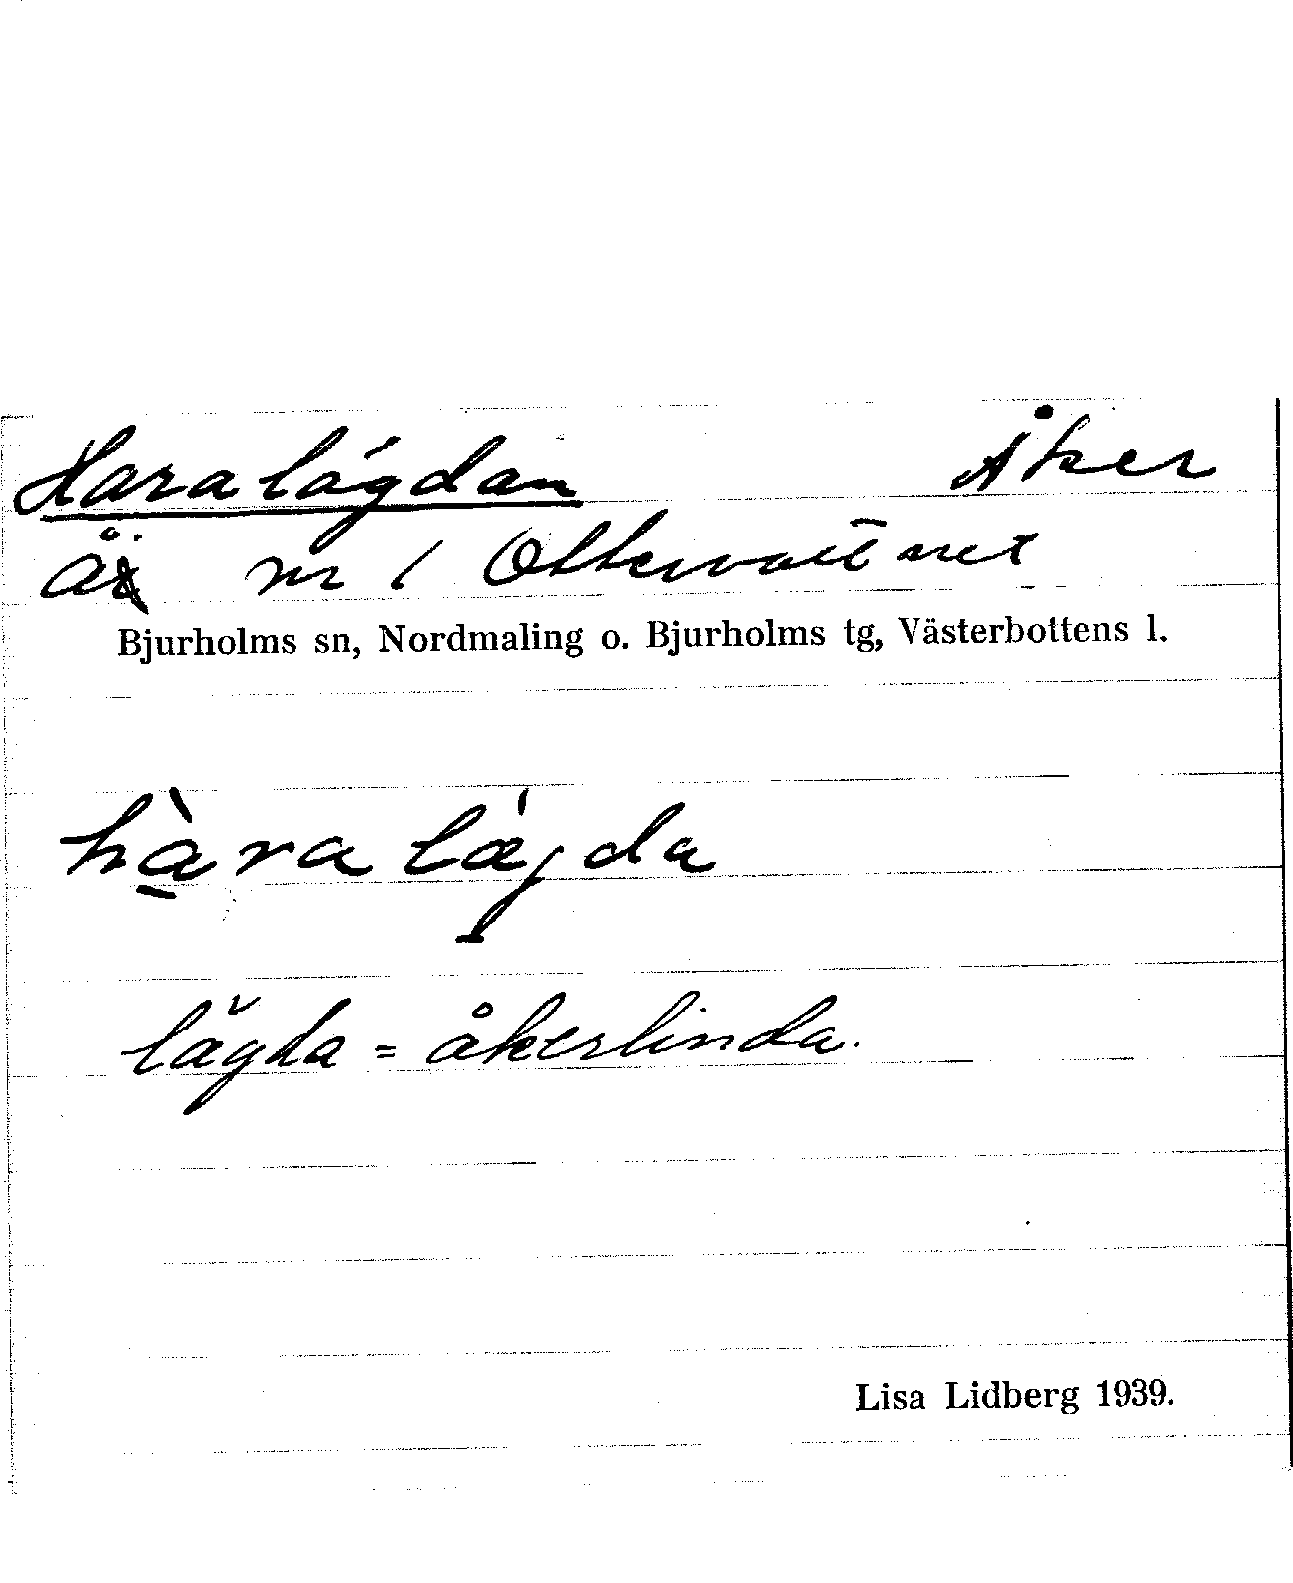 Haralägdan Åker
nr 1 Ottervattnet
Bjurholms sn, Nordmaling o. Bjurholms tg, Västerbottens l.
hàra lǽgda
lägda = åkerlinda.
Lisa Lidberg 1939.